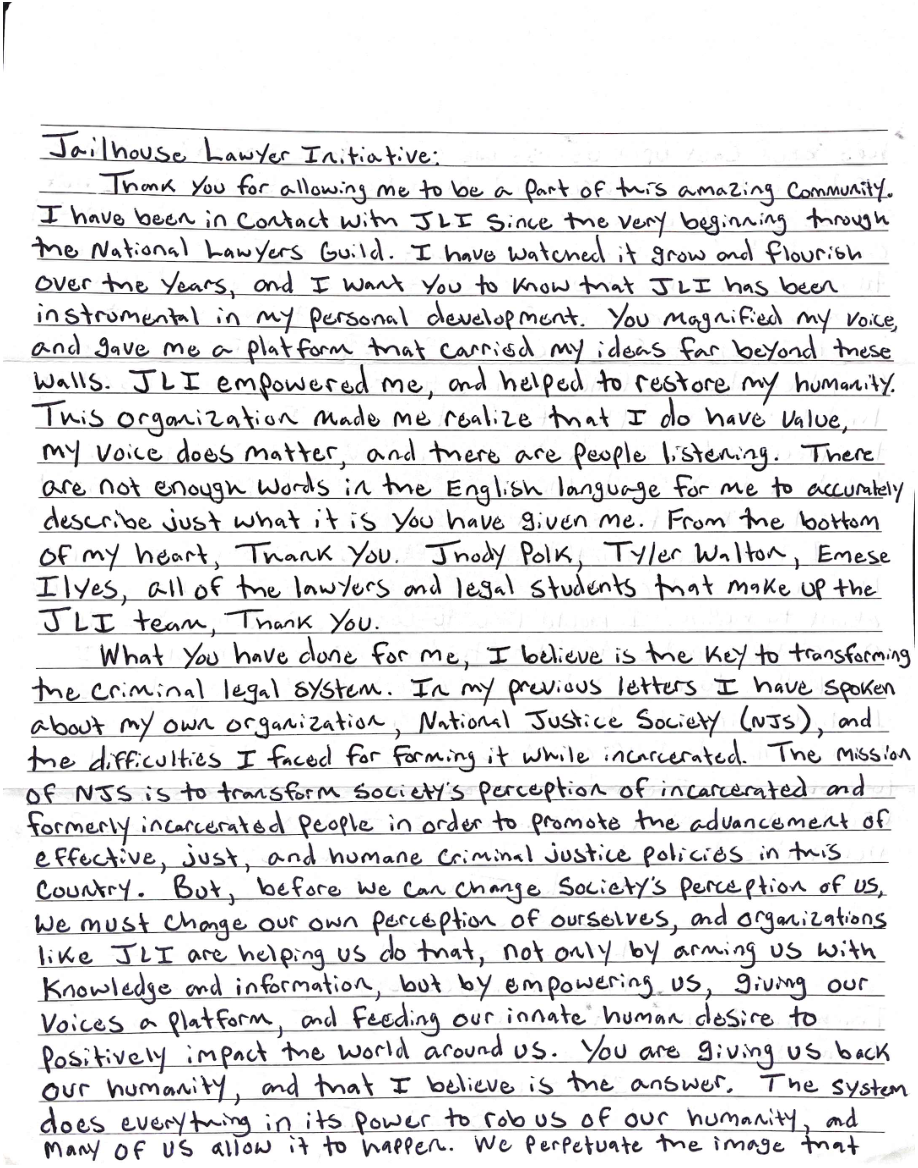 Jailhouse Lawyer Initiative:
Thank You for allowing me to be a part of this amazing Community.
I have been in Contact with JLI Since the very beginning through
the National Lawyers Guild. I have watched it grow and flourish
over the years, and I want you to know that JLI has been
instrumental in my personal development. You magnified my voice,
and gave me a platform that carried my ideas far beyond these
walls. JLI empowered me, and helped to restore my humanity.
This organization made me realize that I do have value,
my voice does matter, and there are people listening. There
are not enough words in the English language for me to accurately
describe just what it is you have given me. From the bottom
of my heart, Thank You. Jhody Polk, Tyler Walton, Emese
Ilyes, all of the lawyers and legal students that make up the
JLI team, Thank You.
What you have done for me, I believe is the key to transforming
the criminal legal system. In my previous letters I have spoken
about my own organization, National Justice Society (NJS), and
the difficulties I faced for forming it while incarcerated. The mission
of NJS is to transform society's perception of incarcerated and
formerly incarcerated people in order to promote the advancement of
effective, just, and humane criminal justice policies in this
Country. But, before we can change Society's perception of us,
we must change our own perception of ourselves, and organizations
like JLI are helping us do that, not only by arming us with
knowledge and information, but by empowering us, giving our
voices a platform, and feeding our innate human desire to
positively impact the world around us. You are giving us back
our humanity, and that I believe is the answer. The system
does everything in its power to rob us of our humanity, and
many of us allow it to happen. We perpetuate the image that